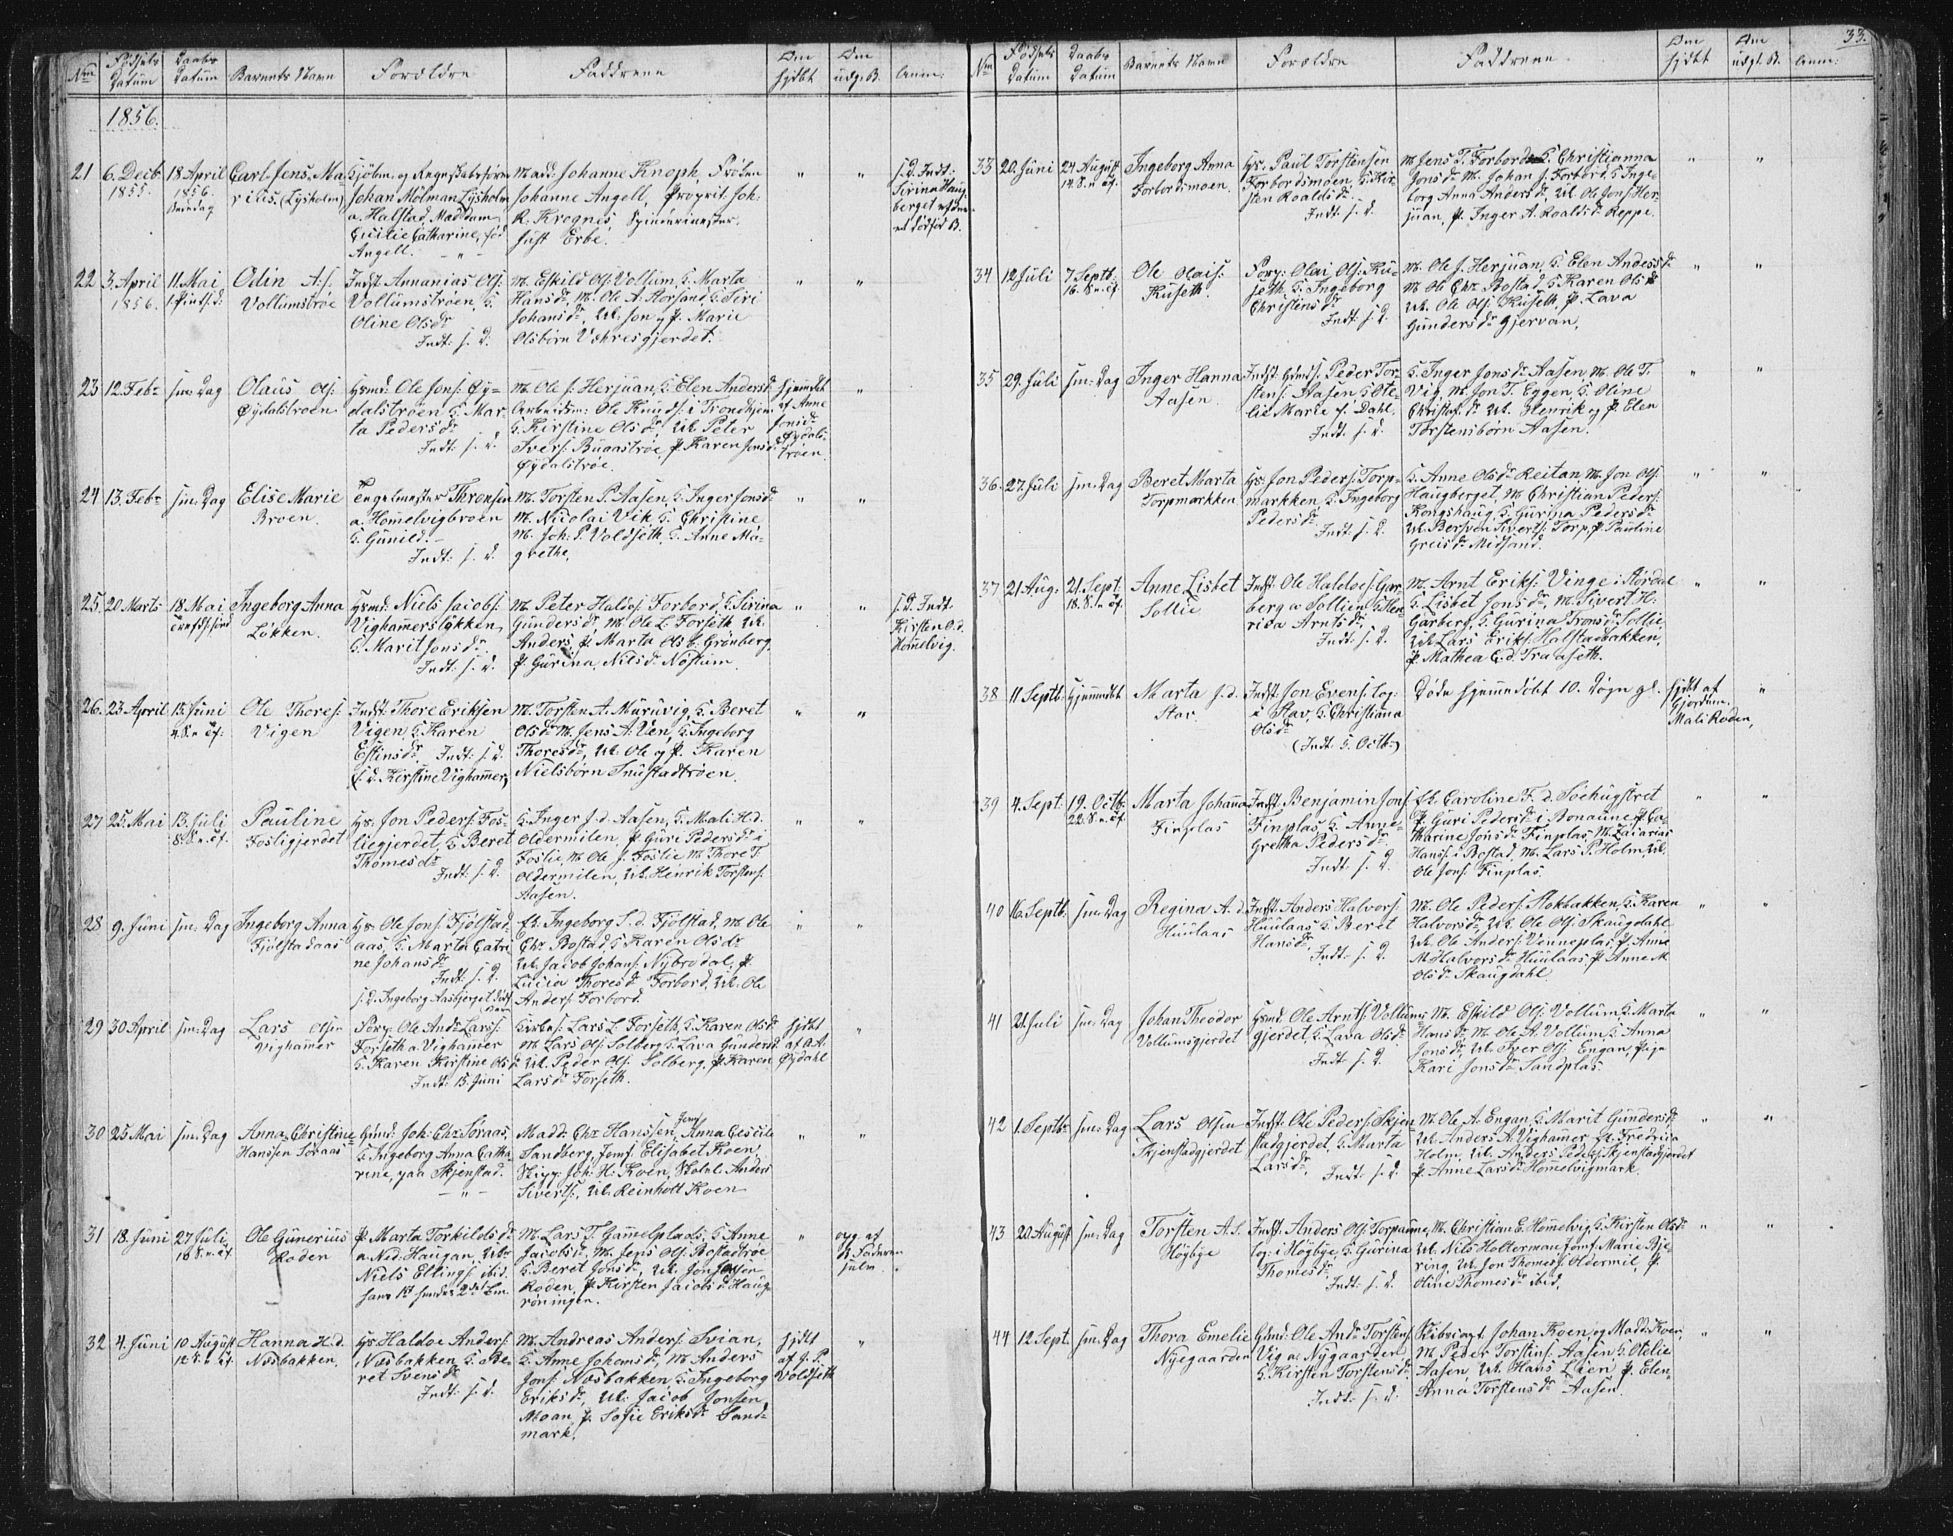 33.
Nm
Fødsels Datum
Daabs Datum
Barnets Navn
Forældre
Faddrene
Om hjdbt
Om udg. B.
Anm:
1856.
21
6. Decb 1855.
18 April 1856.
Carl Jens Ma-
rius. (Lysholm)
Johan Molman Lysholm
a. Halstad Maddam
Cecilie Catharine, fød
Angell.
Mad: Johanne Knoph, Frøken
Johanne Angell, Proprit. Joh:
K. Krognes, Spinnerimester
Just Erbe.
s. D. Indt:
22
3. April 1856.
11. Mai
1 Pintsd.
Odin A. s.
Vollumstrøe
Indst. Annanias Ols:
Vollumstrøen, G.
Oline Olsdr
Indt: s. D.
M. Eskild Ols: Vollum, G. Marta
Hansdr, M. Ole A. Horsand, G. Siri
Johansdr, Uk. Jon og P. Marie
Olsbørn Vehresgjerdet.
23
12. Febr
sm. Dag
Olaus Ols:
Øydalstrøen
Husmd: Ole Jons: Øy-
dalstrøen G. Mar-
ta Pedersdr
Indt: s. d.
M. Ole J. Herjuan, G. Elen Andersdr
Arbeidsm: Ole Knuds: i Trondhjem
G. Kirstine Olsdr Uk. Peter
Ivers: Bugastrøe, P. Karen Jonsdr
Øydalstrøe.
hjemdbt
af Anne
Jonsdr
Øydals-
trøen.
24
13. Febr
sm. Dag
Elise Marie
Broen.
a. Homelvigbroen
G. Gunild.
Indt: s. d.
M. Torsten P. Aasen, G. Inger Jonsdr
M. Nicolai Vik G. Christine,
M. Joh: P. Voldseth, G. Anne Ma-
grethe.
25.
20 Marts
18. Mai
Ingeborg Anna
Løkken.
Husmd: Niels Jacobs:
Vighammersløkken,
G. Marit Jonsdr.
Indt: s. d.
M. Peter Haldos: Forbord, G. Sirina
Gundersdr. M. Ole L. Forseth Uk.
Anders, P. Marta Olsb: Grønberg,
P. Gurina Nilsdr Nøstum.
s. D. Indt:
Kirsten O. d.
Homelvig.
26.
23. April
15. Juni
4. S. e. Tf.
Ole Thores:
Vigen
Indst. Thore Eriksen
Vigen, G. Karen
Estinsdr. Indt: s. d.
s. d. Kirstine Vighammer,
M. Torsten A. Muruvig, G. Beret
Olsdr M. Jens A. Ven, G. Ingeborg
Thoresdr, Uk. Ole og P. Karen
Nielsbørn Snustadtrøen.
27
25. Mai
13. Juli
8. S. e. Tf.
Pauline
Fosligjerdet
Hs. Jon Peders: Fos-
liegjerdet, G. Beret
Thomesdr
Indt: s. d.
G. Inger J. d. Aasen, G. Mali H. d.
Oldermilen, P. Guri Pedersdr i
Foslie, M. Ole J. Foslie M. Thore T.
Oldermilen, Uk. Henrik Torstens:
Aasen.
28
9. Juni
sm. Dag
Ingeborg Anna
Fjølstadaas
Hs. Ole Jons: Fjølstad-
aas, G. Marta Catri
ne Johansdr
Indt: s. d.
s. D. Ingeborg Aasbjerget
fk. Ingeborg S. d. Fjølstad, M. Ole
Chr. Bostad G. Karen Olsdr
Uk. Jacob Johans: Nybrodal, P.
Lucia Thoresdr Forbord, Uk. Ole
Anders: Forbord.
29
30 April
sm. Dag
Lars Olsen
Vighamer
Forp. Ole Andr Lars:
Forseth a Vighamer
G. Karen Kirstine Olsdr
Indt: 15. Juni
Kirkes: Lars L. Forseth, G. Karen Olsdr
M. Lars Ols: Solberg G. Lava Gundersdr
Uk. Peder Ols: Solberg, P. Karen
Larsdr Forseth.
hjdbt
af A. A.
Øydahl
30
25 Mai
sm. Dag
Anna Christine
Hanssen Søraas
Gmd: Joh: Chr. Søraas,
G. Ingeborg Anna Catha
rine, paa Skjenstad.
Madd: Chr. Hanssen, Jomf Anna Cecilie
Sandberg, Jomf. Elisabet Koen,
Skipp. Joh: H. Koen, Anders
Siverts:, Uk. Reinholt Koen
31
18. Juni
27 Juli
10 S. e. Tf.
Ole Gunerius
Roden
P. Marta Torkildsdr
a Ned: Haugan,
Niels Ellings: ibid.
hans 1st hendes 2det
M. Lars T. Gammelplads, G. Anne
Jacobsdr, M. Jens Ols: Bostadtrøe
G. Beret Jonsdr, Uk. Jon
Roden, P. Kirsten Jacobsdr Haug-
røningen.
opg. af
B. Faderen
sjelv.
32
4. Juni
10 August
12 S. e. Tf.
Hanna H. d.
Næsbakken,
Hs Haldoe Anders:
Næsbakken, G. Be-
ret Svensdr
Indt: s. d.
M. Andreas Anders: Svian,
G. Anne Johansdr, M. Anders
Jons: Næsbakken G. Ingeborg
Eriksdr, Uk. Jacob Jonsen
Moan, P. Sofie Eriksdr Sand-
mark.
hjdbt
af J. P.
Voldseth
Nm
Fødsels Datum
Daabs Datum
Barnets Navn
Forældre
Faddrene
Om hjdbt
Om udgt. B.
Anm:
33
20. Juni
24 August
14. S. e. Tf.
Ingeborg Anna
Forbordsmoen
Hs. Paul Torstensen
Forbordsmoen, G. Kir-
sten Roaldsdr
Indt: s. d.
M. Jens T. Forbord G. Christianna
Jonsdr M. Johan J. Forbord, G. Inge-
borg Anna Andersdr, Uk. Ole Jons: Her-
juan, P. Inger A. Roaldsdr Reppe.
34
12 Juli
7 Septb:
16. S. e. Tf.
Ole Olais:
Kuseth.
Forp: Olai Ols: Ku-
seth, G. Ingeborg
Christensdr
Indt: s. d.
M. Ole J. Herjuan, G. Elen Andersdr
M. Ole Chr. Bostad, G. Karen Olsdr
Uk. Ole Ols: Kuseth, P. Lava
Gundersdr Gjervan.
35
29. Juli
sm. Dag
Inger Hanna
Aasen.
Indst. Gmds: Peder Tor-
stens: Aasen G. Ote-
lie Marie f. Dahl.
Indt: s. d.
G. Inger Jonsdr Aasen M. Ole T.
Vig, M. Jon T. Eggen G. Oline
Christofdr Uk. Henrik og P. Elen
Torstensbørn Aasen.
36.
27. Juli
sm. Dag
Beret Marta
Torpmarkken
Hs. Jon Peders: Torp-
markken, G. Ingeborg
Pedersdr
Indt: s. d.
G. Anne Olsdr Reitan, M. Jon Ols:
Haugberget, M. Christian Peders:
Kongshaug, G. Gurina Pedersdr
Uk. Bersven Siverts: Torp, P. Pauline
Greisdr Midsand.
37
21 Aug:
21. Sept.
18. S. e. Tf.
Anne Lisbet
Sollie
Indst. Ole Haldoes: Gar-
berg a Sollien G. Hen-
rica Arntsdr.
Indt: s. d.
M. Arnt Eriks: Vinge i Størdal
G. Lisbet Jonsdr, M. Sivert H.
Garberg, G. Gurina Tronsdr Sollie,
Uk. Lars Eriks: Halstadbakken,
P. Mathea E. d. Traaseth.
38
11. Septb:
hjemmedbt
Marta J. d.
Stav
Indst: Jon Evens: log:
i Stav, G. Christianna
Olsdr
(Indt: 5. Octbr)
Døde hjemmedøbt 10. Døgn gl.
hjdbt af
Gjordem.
Mali Roden,
39
4. Sept.
19. Octb.
22. S. e. Tf.
Marta Johanna
Finplas
Indst. Benjamin Jons:
Finplas, G. Anne-
Gretha Pedersdr
Indt: s. d.
fk. Caroline F. d. Soehugstret
P. Guri Pedersdr i Bonaune, P. Ca-
tharine Jonsdr Finplas, M. Zacarias
Hans: i Bostad, M. Lars P. Holm, Uk.
Ole Jons: Finplas.
40
16. Septb:
sm. Dag
Regina A. d.
Huulaas
Indst. Anders Halvors:
Huulaas G. Beret
Hansdr,
Indt: s. d.
M. Ole Peders: Stokbakken, G. Karen
Halvorsdr, Uk. Ole Ols: Skaugdahl
Uk. Ole Anders: Venneplas, P. Anne
M. Halvorsdr Huulaas P. Anne M.
Olsdr Skaugdahl.
41
21. Juli
sm. Dag
Johan Theodor
Vollumsgjerdet
Husmd. Ole Arnts: Vollums-
gjerdet, G. Lava Olsdr
Indt: s. d.
M. Eskild Ols: Vollum, G. Marta
Hansdr, M. Ole A. Vollum, G. Anna
Jonsdr, Uk. Iver Ols: Engan, Pige
Kari Jonsdr Sandplas.
42
1. Septbr
sm. Dag
Lars Olsen
Skjenstadgjerdet
Indst. Ole Peders: Skjen
stadgjerdet, G. Marta
Larsdr,
Indt: s. d.
M. Ole A. Engan, G. Marit Gundersdr
Uk. Anders A. Vighamer fk. Fredrica
Holm, Uk. Anders Peders: Skjenstadgjerdet
P. Anne Larsdr Homelvigmark
43
20. August
sm. Dag
Torsten A. s.
Høgbye
Indst. Anders Ols: Torpaune,
log: i Høgbye, G. Gurina
Thomesdr
Indt: s. d.
M. Christian E. Homelvig, G. Kirsten Olsdr
Uk. Nils Holterman, Jomf: Marie Bje-
ring, Uk. Jon Thomes: Oldermil, P.
Oline Thomesdr ibid.
44
12. Sept.
sm. Dag
Thora Emelie
Nyegaarden
Gmd: Ole Andr Torstens:
Vig a Nygaarden
G. Kirsten Torstensdr.
Indt: s. d.
Johan Koen, og Madd: Koen,
M. Peder Torstins: Aasen G. Otelie
Aasen, Uk. Hans Lien, P. Elen
Anna Torstensdr Aasen.